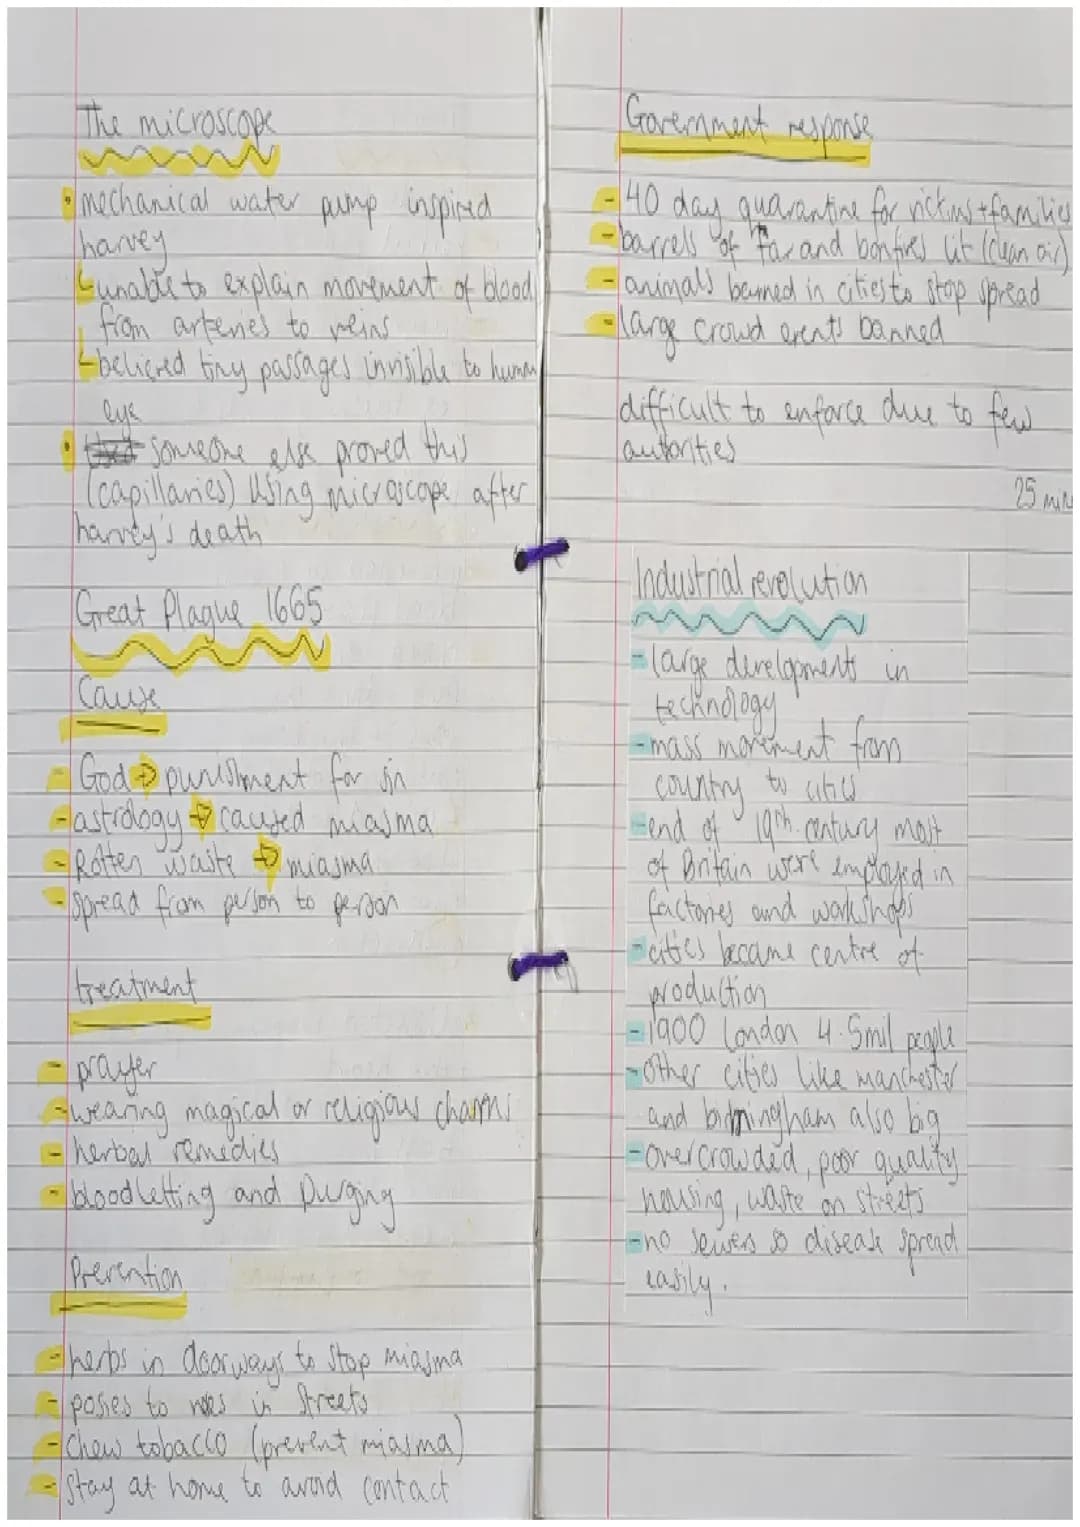 The microscope
• mechanical water pump inspired
harvey
unable to explain movement of blood
from arteries to veins
believed tiny passages invisible to human
eye
• someone else proved this
(capillaries) using microscope after
harvey's death
Great Plague 1665
Cause
- God → punishment for sin
- astrology → caused miasma
- Rotten waste → miasma
- spread from person to person
treatment
- prayer
- wearing magical or religious charms
- herbal remedies
- bloodletting and purging
Prevention
- herbs in doorways to stop miasma
- posies to noses in streets
- chew tobacco (prevent miasma)
- stay at home to avoid contact
Government response
- 40 day quarantine for victims + families
- barrels of tar and bonfires lit (clean air)
- animals banned in cities to stop spread
- large crowd events banned
difficult to enforce due to few
autorities
25 min
Industrial revolution
- large developments in
technology
- mass movement from
country to cities
- end of 19th century most
of Britain were employed in
factories and workshops
- cities became centre of
production
- 1900 London 4.5mil people
- other cities like manchester
and birmingham also big
- overcrowded, poor quality
housing, waste on streets
- no sewers so disease spread
easily.